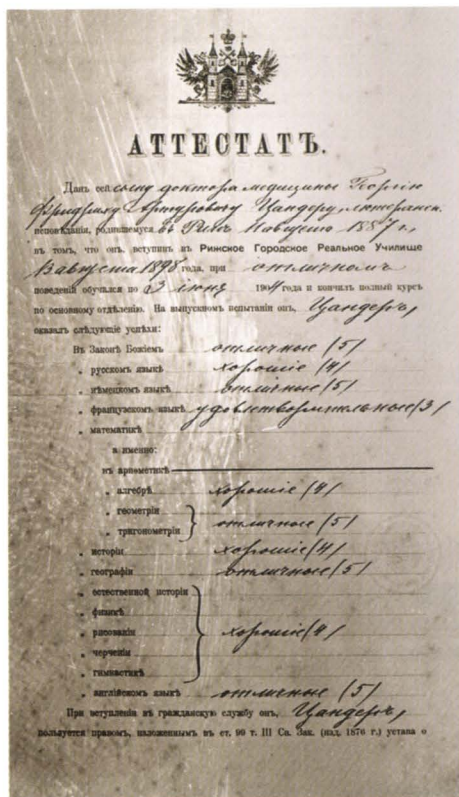 АТТЕСТАТЪ.
Данъ сей сыну доктора медицины Георгію
Фридриху Артуровичу Цандеру, лютеранск.
исповѣданія, родившемуся въ Ригѣ 11 августа 1887 г.,
въ томъ, что онъ, вступивъ въ Рижское Городское Реальное Училище
13 августа 1898 года, при отличномъ
поведеніи обучался по 3 іюня 1904 года и кончилъ полный курсъ
по основному отдѣленію. На выпускномъ испытаніи онъ, Цандеръ,
оказалъ слѣдующіе успѣхи:
Въ Законѣ Божіемъ отличные (5)
„ русскомъ языкѣ хорошіе (4)
„ нѣмецкомъ языкѣ отличные (5)
„ французскомъ языкѣ удовлетворительные (3)
„ математикѣ
а именно:
въ ариѳметикѣ
„ алгебрѣ хорошіе (4)
„ геометріи
„ тригонометріи отличные (5)
„ исторіи хорошіе (4)
„ географіи отличные (5)
„ естественной исторіи
„ физикѣ
„ рисованіи хорошіе (4)
„ черченіи
„ гимнастикѣ
„ англійскомъ языкѣ отличные (5)
При вступленіи въ гражданскую службу онъ, Цандеръ,
пользуется правомъ, изложеннымъ въ ст. 99 т. III Св. Зак. (изд. 1876 г.) устава о